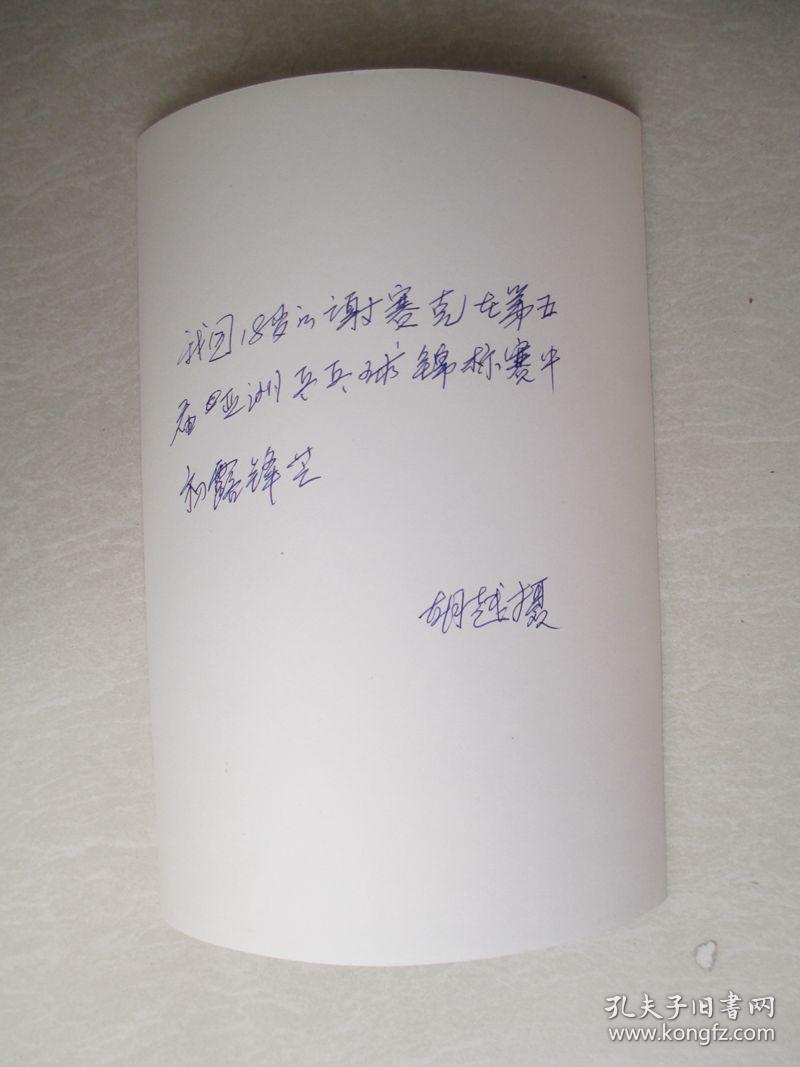 我国18岁的谢赛克在第五
届亚洲乒乓球锦标赛中
初露锋芒
胡越摄
孔夫子旧书网
www.kongfz.com